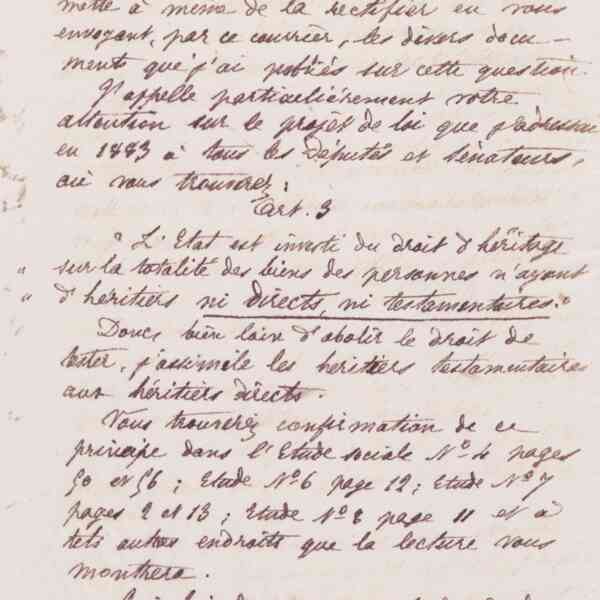 mette à même de la rectifier en vous
envoyant, par ce courrier, les divers docu-
ments que j'ai publiés sur cette question.
J'appelle particulièrement votre
attention sur le projet de loi que j'adressai
en 1883 à tous les Députés et Sénateurs,
où vous trouverez :
Art. 3
" L'Etat est investi du droit d'héritage
" sur la totalité des biens des personnes n'ayant
" d'héritiers ni directs, ni testamentaires."
Donc bien loin d'abolir le droit de
tester, j'assimile les héritiers testamentaires
aux héritiers directs.
Vous trouverez confirmation de ce
principe dans l'Etude sociale No 4 pages
50 et 56 ; Etude No 6 page 12 ; Etude No 7
pages 2 et 13 ; Etude No 8 page 11 et à
tels autres endroits que la lecture vous
montrera.